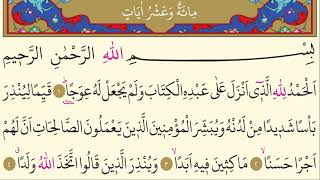 مِائَةٌ وَعَشْرُ اٰيَاتٍ
بِسْمِ اللّٰهِ الرَّحْمٰنِ الرَّحٖيمِ
اَلْحَمْدُ لِلّٰهِ الَّذٖٓي اَنْزَلَ عَلٰى عَبْدِهِ الْكِتَابَ وَلَمْ يَجْعَلْ لَهُ عِوَجًاؕ ﴿١﴾ قَيِّمًا لِيُنْذِرَ
بَأْسًا شَدٖيدًا مِنْ لَدُنْهُ وَيُبَشِّرَ الْمُؤْمِنٖينَ الَّذٖينَ يَعْمَلُونَ الصَّالِحَاتِ اَنَّ لَهُمْ
اَجْرًا حَسَنًاۙ ﴿٢﴾ مَاكِثٖينَ فٖيهِ اَبَدًاۙ ﴿٣﴾ وَيُنْذِرَ الَّذٖينَ قَالُوا اتَّخَذَ اللّٰهُ وَلَدًاۗ ﴿٤﴾